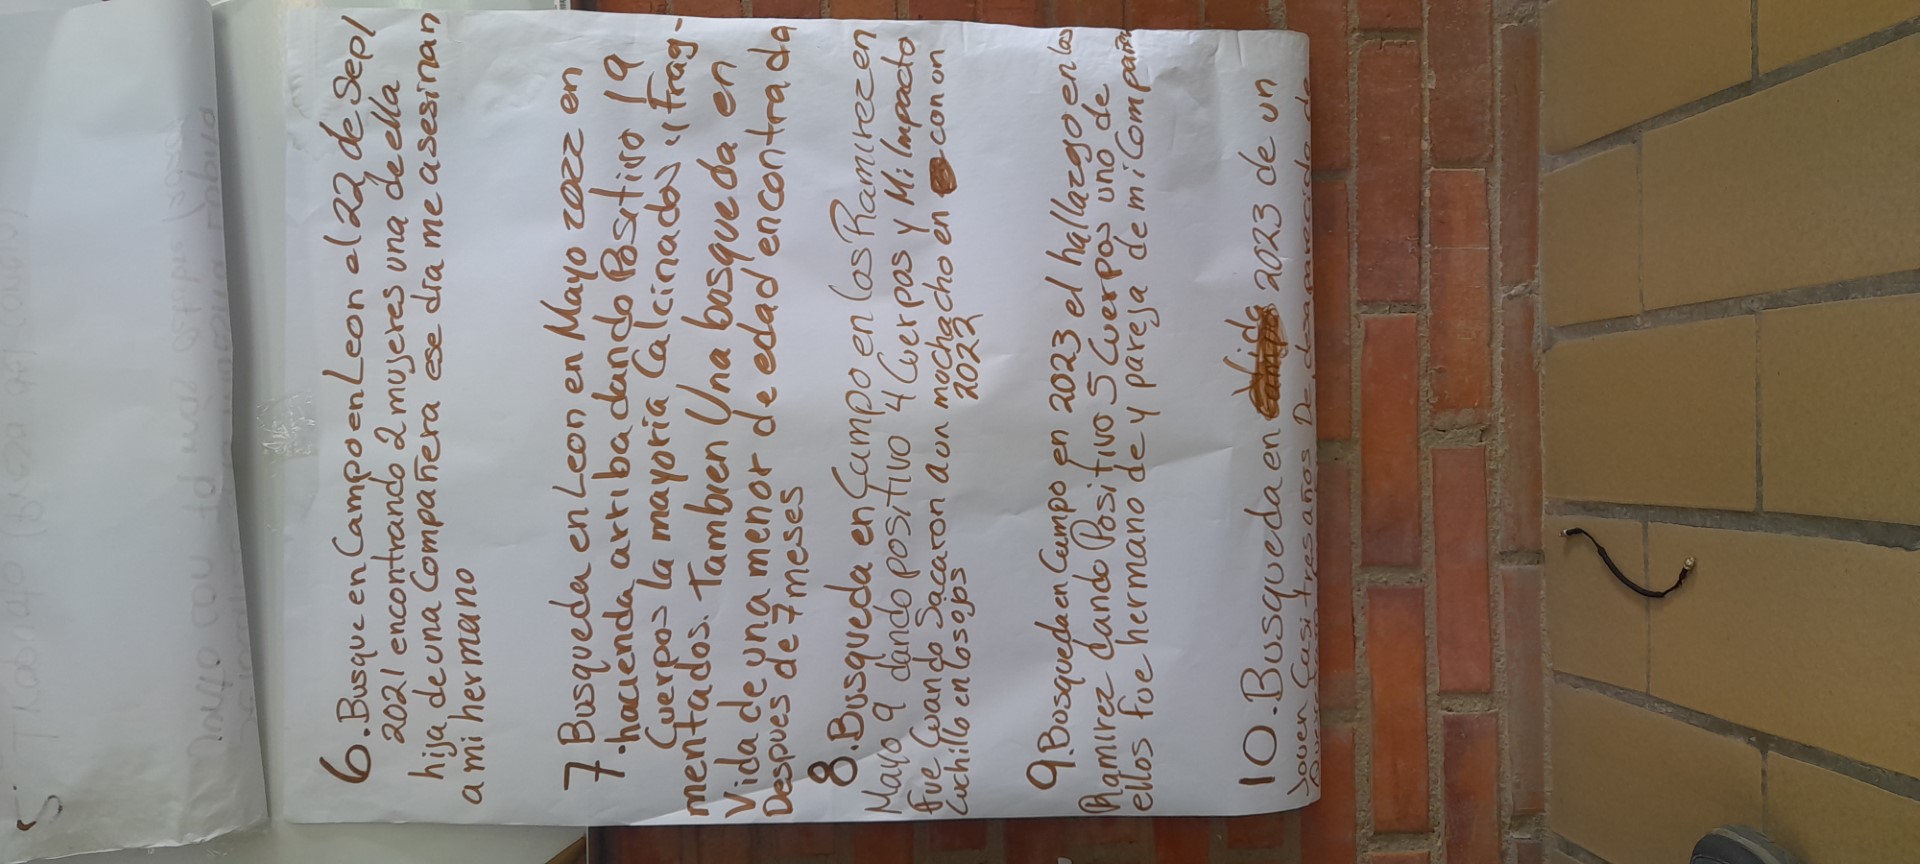 6. Busque en Campo en Leon el 22 de Sep/
2021 encontrando 2 mujeres una de ella
hija de una Compañera ese dia me asesinan
a mi hermano
7. Busqueda en Leon en Mayo 2022 en
hacienda arriba dando Positivo 19
Cuerpos la mayoria Calcinados, y Frag-
mentados. Tambien Una basqueda en
Vida de una menor de edad encontrada
Despues de 7 meses
8. Busqueda en Campo en los Ramirez en
Mayo 9 dando positivo 4 Cuerpos y Mi Impacto
fue Cuando Sacaron a un muchacho en con un
Cuchillo en los ojos 2022
9. Busqueda en Campo en 2023 el hallazgo en los
Ramirez dando Positivo 5 Cuerpos uno de
ellos fue hermano de y pareja de mi Compañera
10. Busqueda en Vida 2023 de un
Joven Casi tres años De desaparecido de